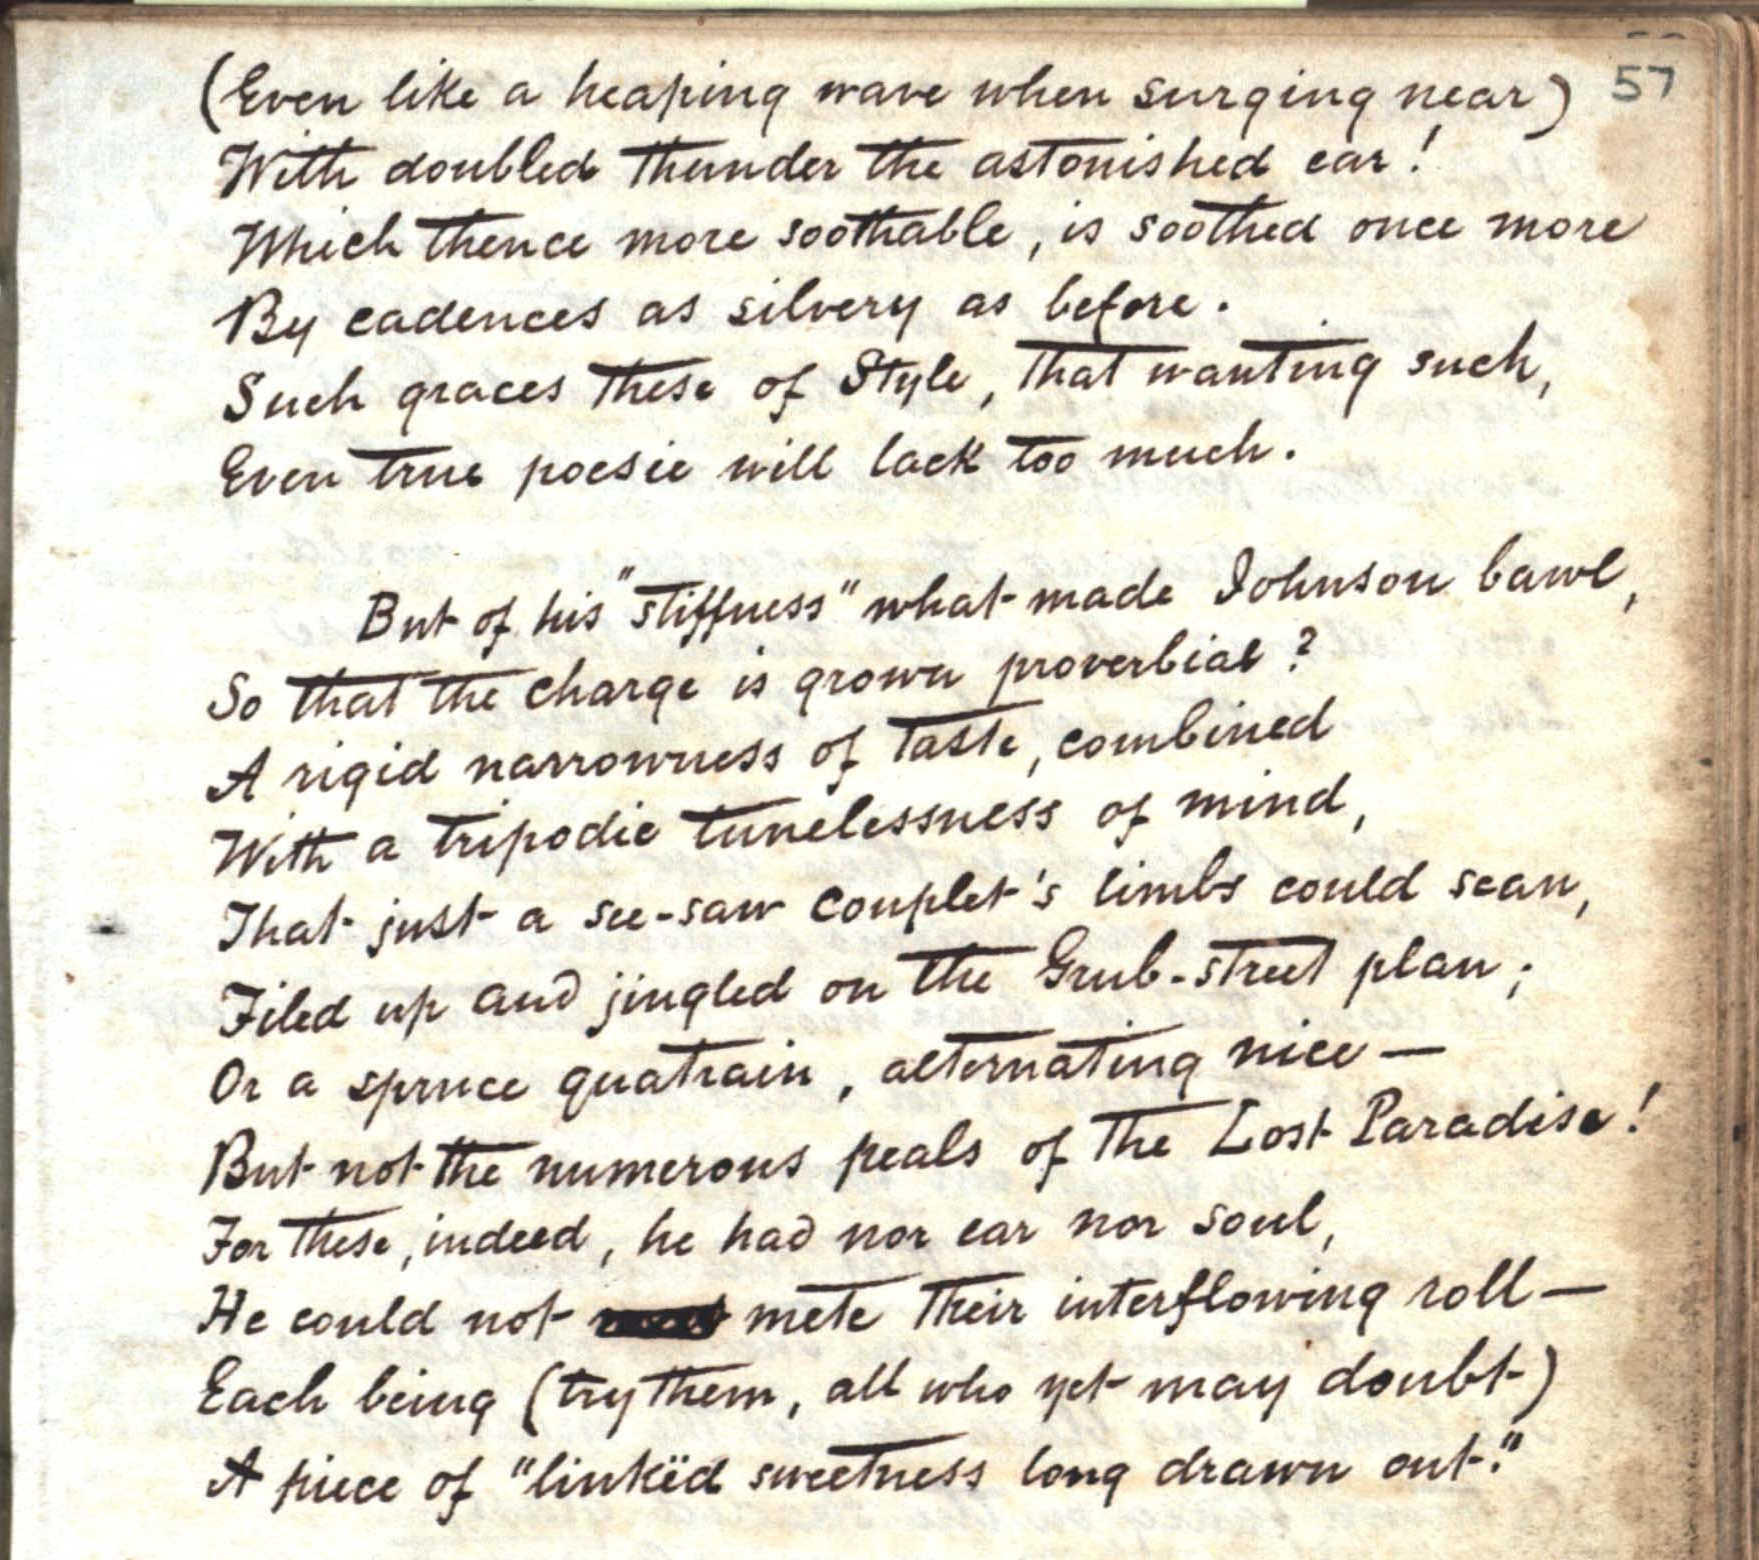 57
(Even like a heaping wave when surging near)
With doubled thunder the astonished ear!
Which thence more soothable, is soothed once more
By cadences as silvery as before.
Such graces these of Style, that wanting such,
Even true poesie will lack too much.
But of his "stiffness" what made Johnson bawl,
So that the charge is grown proverbial?
A rigid narrowness of taste, combined
With a tripodic tunelessness of mind,
That just a see-saw couplet's limbs could scan,
Filed up and jingled on the Grub-street plan;
Or a spruce quatrain, alternating nice—
But not the numerous peals of The Lost Paradise!
For these, indeed, he had nor ear nor soul,
He could not mete their interflowing roll—
Each being (try them, all who yet may doubt)
A piece of "linkëd sweetness long drawn out."